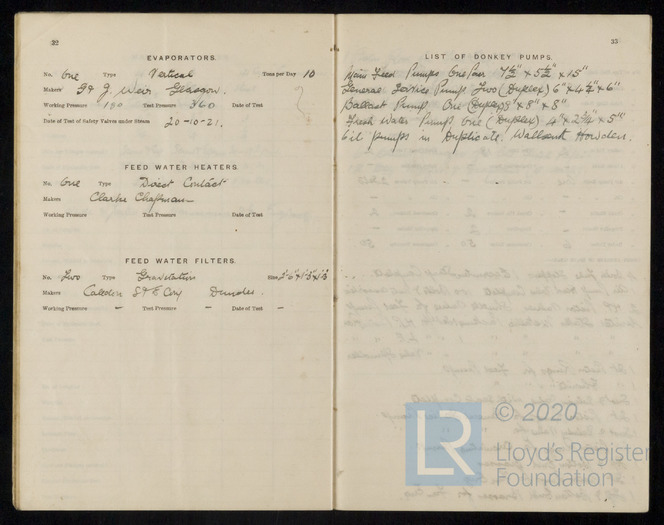 22
EVAPORATORS.
No. One Type Vertical Tons per Day 10
Makers G & J Weir Glasgow.
Working Pressure 180 Test Pressure 360 Date of Test
Date of Test of Safety Valves under Steam 20-10-21.
FEED WATER HEATERS.
No. One Type Direct Contact
Makers Clarke Chapman
Working Pressure Test Pressure Date of Test
FEED WATER FILTERS.
No. Two Type Gravitation Size
Makers Caledon S & E Coy Dundee.
Working Pressure – Test Pressure – Date of Test –
23
LIST OF DONKEY PUMPS.
Main Feed Pumps One Pair 7½" x 5½" x 15"
General Service Pump Two (Duplex) 6" x 4½" x 6"
Ballast Pump One (Duplex) 8" x 8" x 8"
Fresh Water Pumps One (Duplex) 4" x 5"
Oil Pumps in Duplicate. Wallsend Howden.
© 2020
LR
Lloyd's Register
Foundation